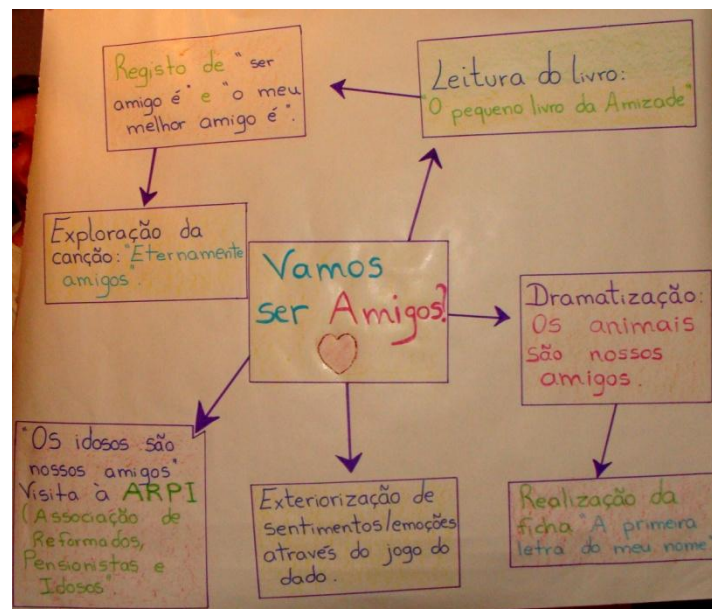 Registo de "ser
amigo é" e "o meu
melhor amigo é".
Leitura do livro:
"O pequeno livro da Amizade"
Exploração da
canção: "Eternamente
amigos".
Vamos
ser Amigos?
Dramatização:
Os animais
são nossos
amigos.
"Os idosos são
nossos amigos"
Visita à ARPI
(Associação de
Reformados,
Pensionistas e
Idosos".
Exteriorização de
sentimentos/emoções
através do jogo do
dado.
Realização da
ficha "A primeira
letra do meu nome"